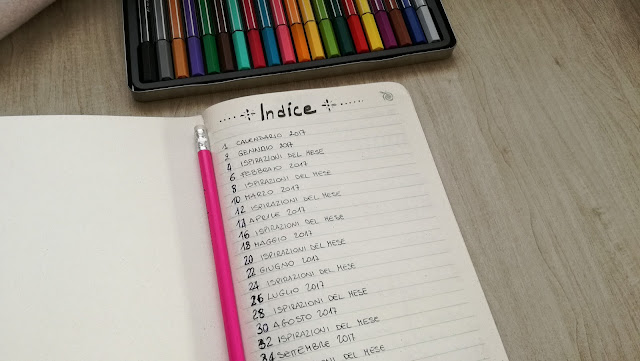 Indice
1 CALENDARIO 2017
3 GENNAIO 2017
4 ISPIRAZIONI DEL MESE
6 FEBBRAIO 2017
8 ISPIRAZIONI DEL MESE
10 MARZO 2017
12 ISPIRAZIONI DEL MESE
14 APRILE 2017
16 ISPIRAZIONI DEL MESE
18 MAGGIO 2017
20 ISPIRAZIONI DEL MESE
22 GIUGNO 2017
24 ISPIRAZIONI DEL MESE
26 LUGLIO 2017
28 ISPIRAZIONI DEL MESE
30 AGOSTO 2017
32 ISPIRAZIONI DEL MESE
34 SETTEMBRE 2017
ISPIRAZIONI DEL MESE